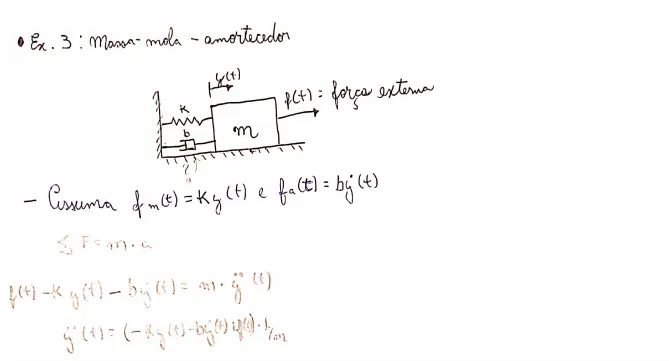 • Ex. 3: Massa-mola-amortecedor
y(t)
K
b
m
f(t) = força externa
?
- Assuma fm(t) = Ky(t) e fa(t) = bẏ(t)
∑ F = m · a
f(t) - Ky(t) - bẏ(t) = m · ÿ(t)
ÿ(t) = (-Ky(t) - bẏ(t) + f(t)) · 1/m